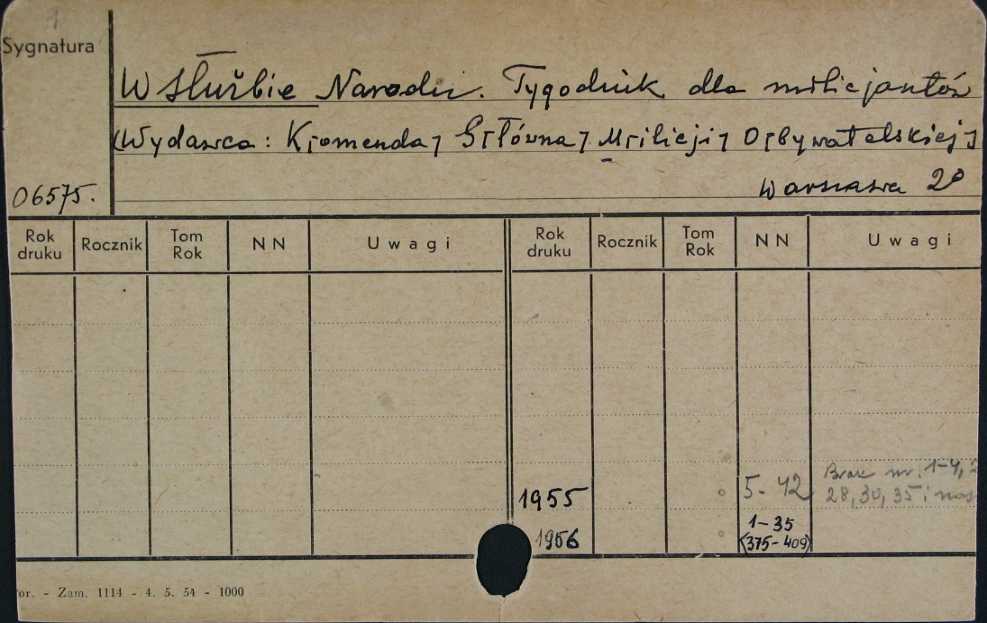 Sygnatura
W Służbie Narodu. Tygodnik dla milicjantów
(Wydawca: K[omenda] G[łówna] M[ilicji] O[bywatelskiej]
06575.
Warszawa 2°
Rok druku Rocznik Tom Rok NN Uwagi Rok druku Rocznik Tom Rok NN Uwagi
1955 5-42 Brak nr. 1-4, 2
28, 30, 35 i nas
1956 1-35
(375-409)
or. - Zam. 1114 - 4. 5. 54 - 1000